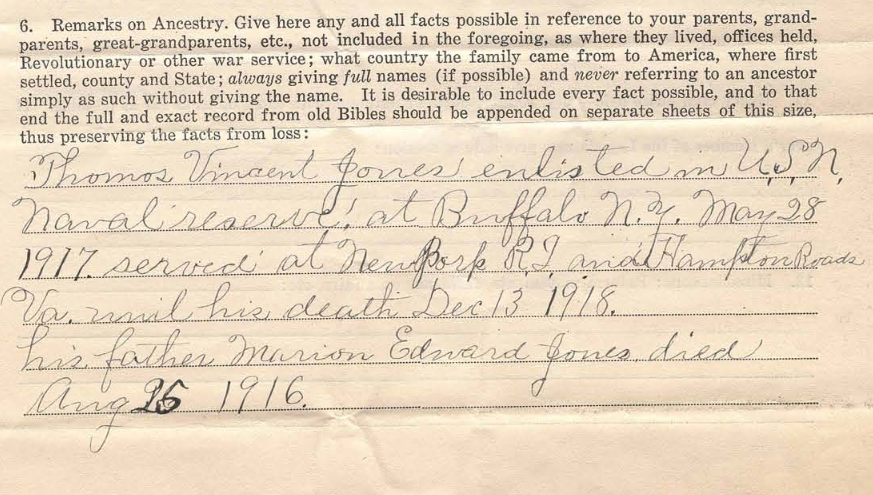 6. Remarks on Ancestry. Give here any and all facts possible in reference to your parents, grand-
parents, great-grandparents, etc., not included in the foregoing, as where they lived, offices held,
Revolutionary or other war service; what country the family came from to America, where first
settled, county and State; always giving full names (if possible) and never referring to an ancestor
simply as such without giving the name. It is desirable to include every fact possible, and to that
end the full and exact record from old Bibles should be appended on separate sheets of this size,
thus preserving the facts from loss:
Thomos Vincent Jones enlisted in U.S.N.
Naval reserve, at Buffalo N.Y. May 28
1917. served at NewPorp R I and Hampton Roads
Va. until his death Dec 13 1918.
his father Marion Edward Jones died
Aug 26 1916.